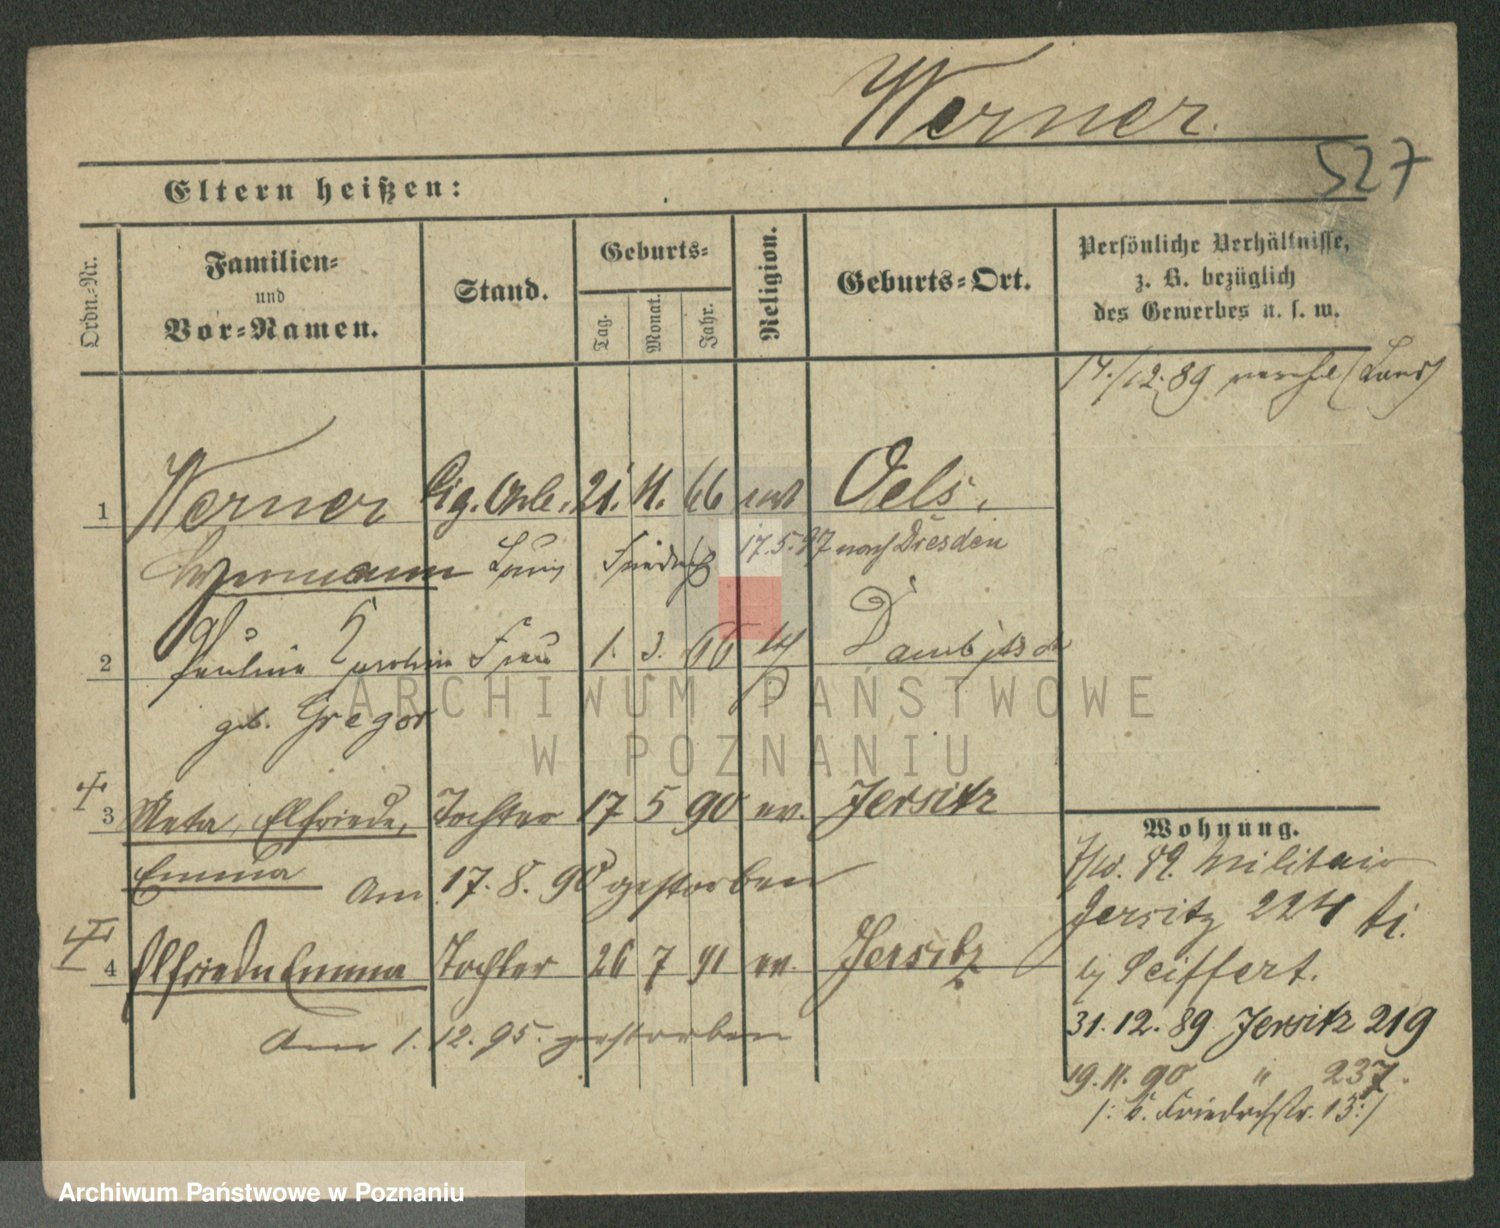 Werner.
527
Eltern heißen:
Ordn.-Nr.
Familien-
und
Vor-Namen.
Stand.
Geburts-
Tag.
Monat.
Jahr.
Religion.
Geburts-Ort.
Persönliche Verhältnisse,
z. B. bezüglich
des Gewerbes u. s. w.
14./12.89
1 Werner Cig. Arb. 21. 11. 66 Oels.
Hermann Louis Friedrich 17.5.97 nach Dresden
2 Pauline Karoline Frau 1. 3. 66
geb. Gregor
3 Meta, Elfriede, Tochter 17 5 90 ev. Jersitz
Emma Am 17. 8. 90 gestorben
4 Elfriede Emma Tochter 26 7 91 ev. Jersitz
Am 1. 12. 95. gestorben
Wohnung.
89. Militair
Jersitz 224
bei Seiffert.
31. 12. 89 Jersitz 219
19. 11. 90 " 237.
Friedrichstr. 13:/
ARCHIWUM PAŃSTWOWE
W POZNANIU
Archiwum Państwowe w Poznaniu